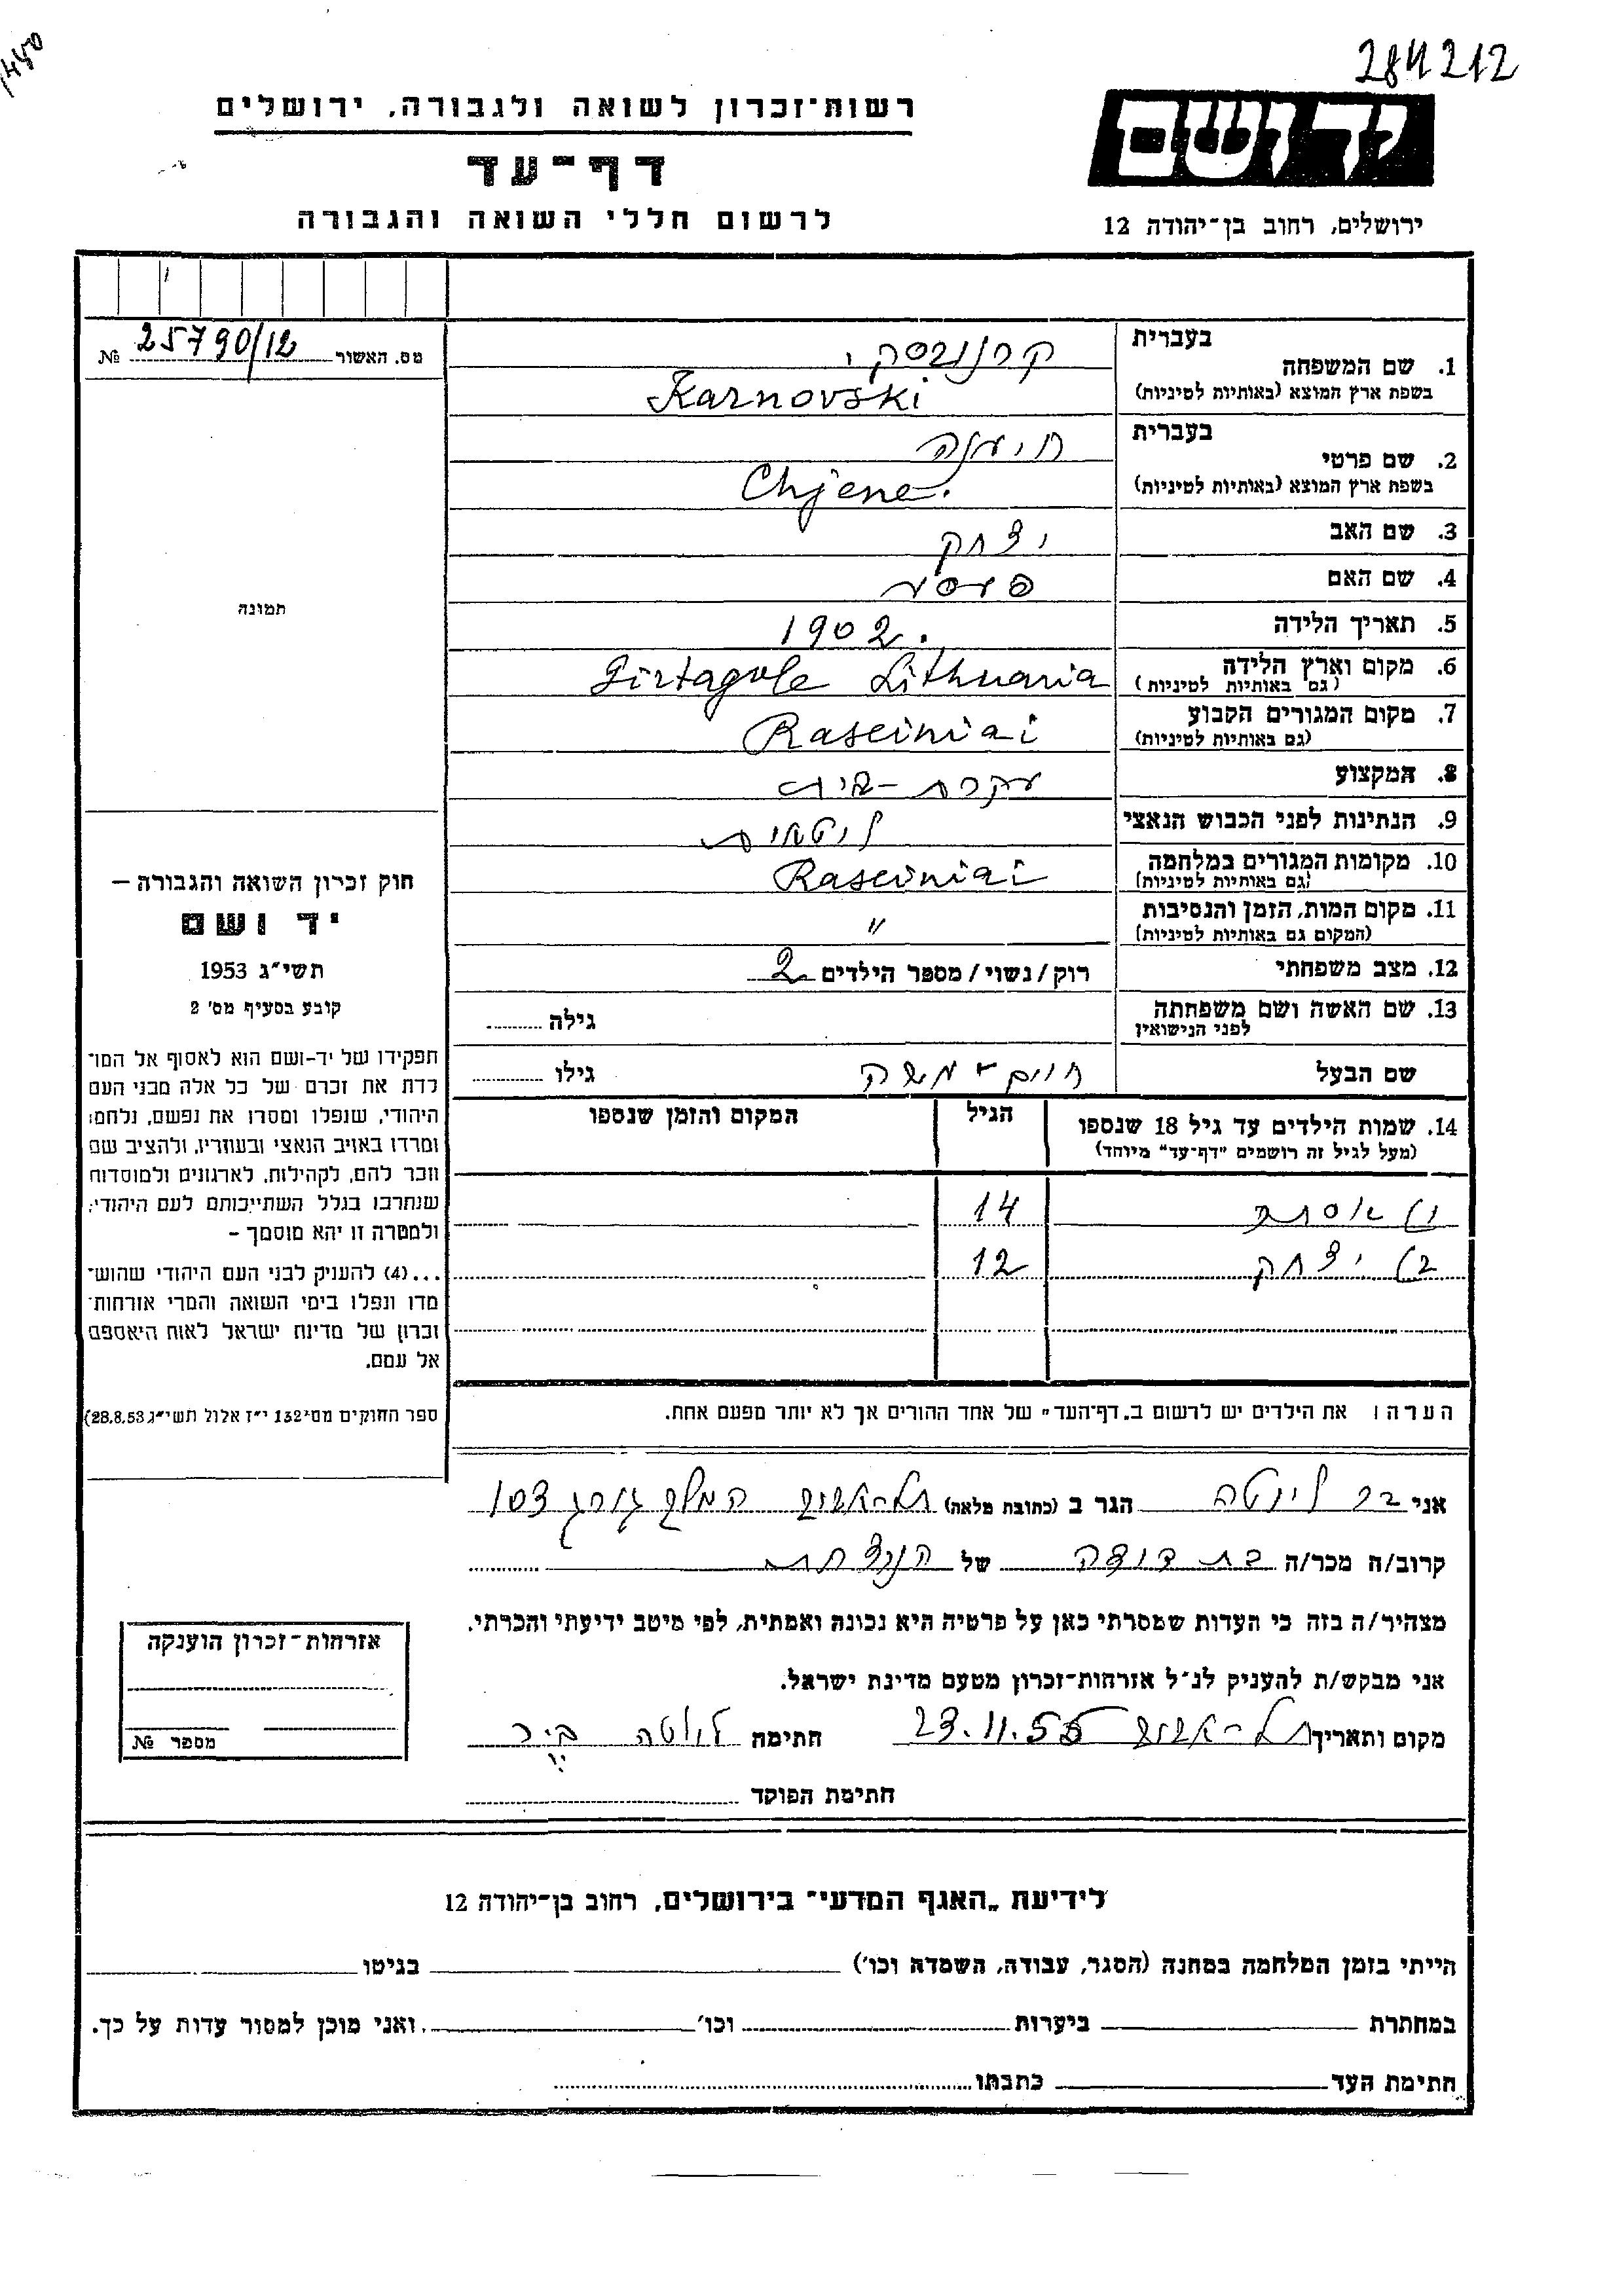 284212
רשות־זכרון לשואה ולגבורה, ירושלים
יד ושם
דף־עד
לרשום חללי השואה והגבורה
ירושלים, רחוב בן־יהודה 12
מס. האשור 25790/12 №
1. שם המשפחה
בעברית קרנובסקי
בשפת ארץ המוצא (באותיות לטיניות) Karnovski
2. שם פרטי
בעברית חיענה
בשפת ארץ המוצא (באותיות לטיניות) Chjene.
3. שם האב יצחק
4. שם האם
5. תאריך הלידה 1902.
6. מקום וארץ הלידה Girtagole Lithuania
(גם באותיות לטיניות)
7. מקום המגורים הקבוע Raseiniai
(גם באותיות לטיניות)
8. המקצוע עקרת-בית
9. הנתינות לפני הכבוש הנאצי ליטאית
10. מקומות המגורים במלחמה Raseiniai
(גם באותיות לטיניות)
11. מקום המות, הזמן והנסיבות "
(המקום גם באותיות לטיניות)
12. מצב משפחתי רוק/נשוי/מספר הילדים 2
13. שם האשה ושם משפחתה גילה
לפני הנישואין
שם הבעל חיים-משה גילו
14. שמות הילדים עד גיל 18 שנספו הגיל המקום והזמן שנספו
(מעל לגיל זה רושמים "דף־עד" מיוחד)
1) אסתר 14
2) יצחק 12
הערה: את הילדים יש לרשום ב„דף־העד" של אחד ההורים אך לא יותר מפעם אחת.
תמונה
חוק זכרון השואה והגבורה —
יד ושם
תשי"ג 1953
קובע בסעיף מס' 2
תפקידו של יד-ושם הוא לאסוף אל המו־
לדת את זכרם של כל אלה מבני העם
היהודי, שנפלו ומסרו את נפשם, נלחמו
ומרדו באויב הנאצי ובעוזריו, ולהציב שם
וזכר להם, לקהילות, לארגונים ולמוסדות
שנחרבו בגלל השתייכותם לעם היהודי;
ולמטרה זו יהא מוסמך –
...(4) להעניק לבני העם היהודי שהוש־
מדו ונפלו בימי השואה והמרי אזרחות־
זכרון של מדינת ישראל לאות היאספם
אל עמם.
(ספר החוקים מס' 132 י"ז אלול תשי"ג 28.8.53)
אני בר ליוטה הגר ב (כתובת מלאה) תל-אביב המלך ג'ורג 103
קרוב/ה מכר/ה בת דודה של הנצחת
מצהיר/ה בזה כי העדות שמסרתי כאן על פרטיה היא נכונה ואמתית, לפי מיטב ידיעתי והכרתי.
אני מבקש/ת להעניק לנ"ל אזרחות־זכרון מטעם מדינת ישראל.
מקום ותאריך תל-אביב 23.11.55 חתימה ליוטה בר
חתימת הפוקד
אזרחות־זכרון הוענקה
מספר №
לידיעת „האגף המדעי" בירושלים, רחוב בן־יהודה 12
הייתי בזמן המלחמה במחנה (הסגר, עבודה, השמדה וכו') בגיטו
במחתרת ביערות וכו' ואני מוכן למסור עדות על כך.
חתימת העד כתבתו